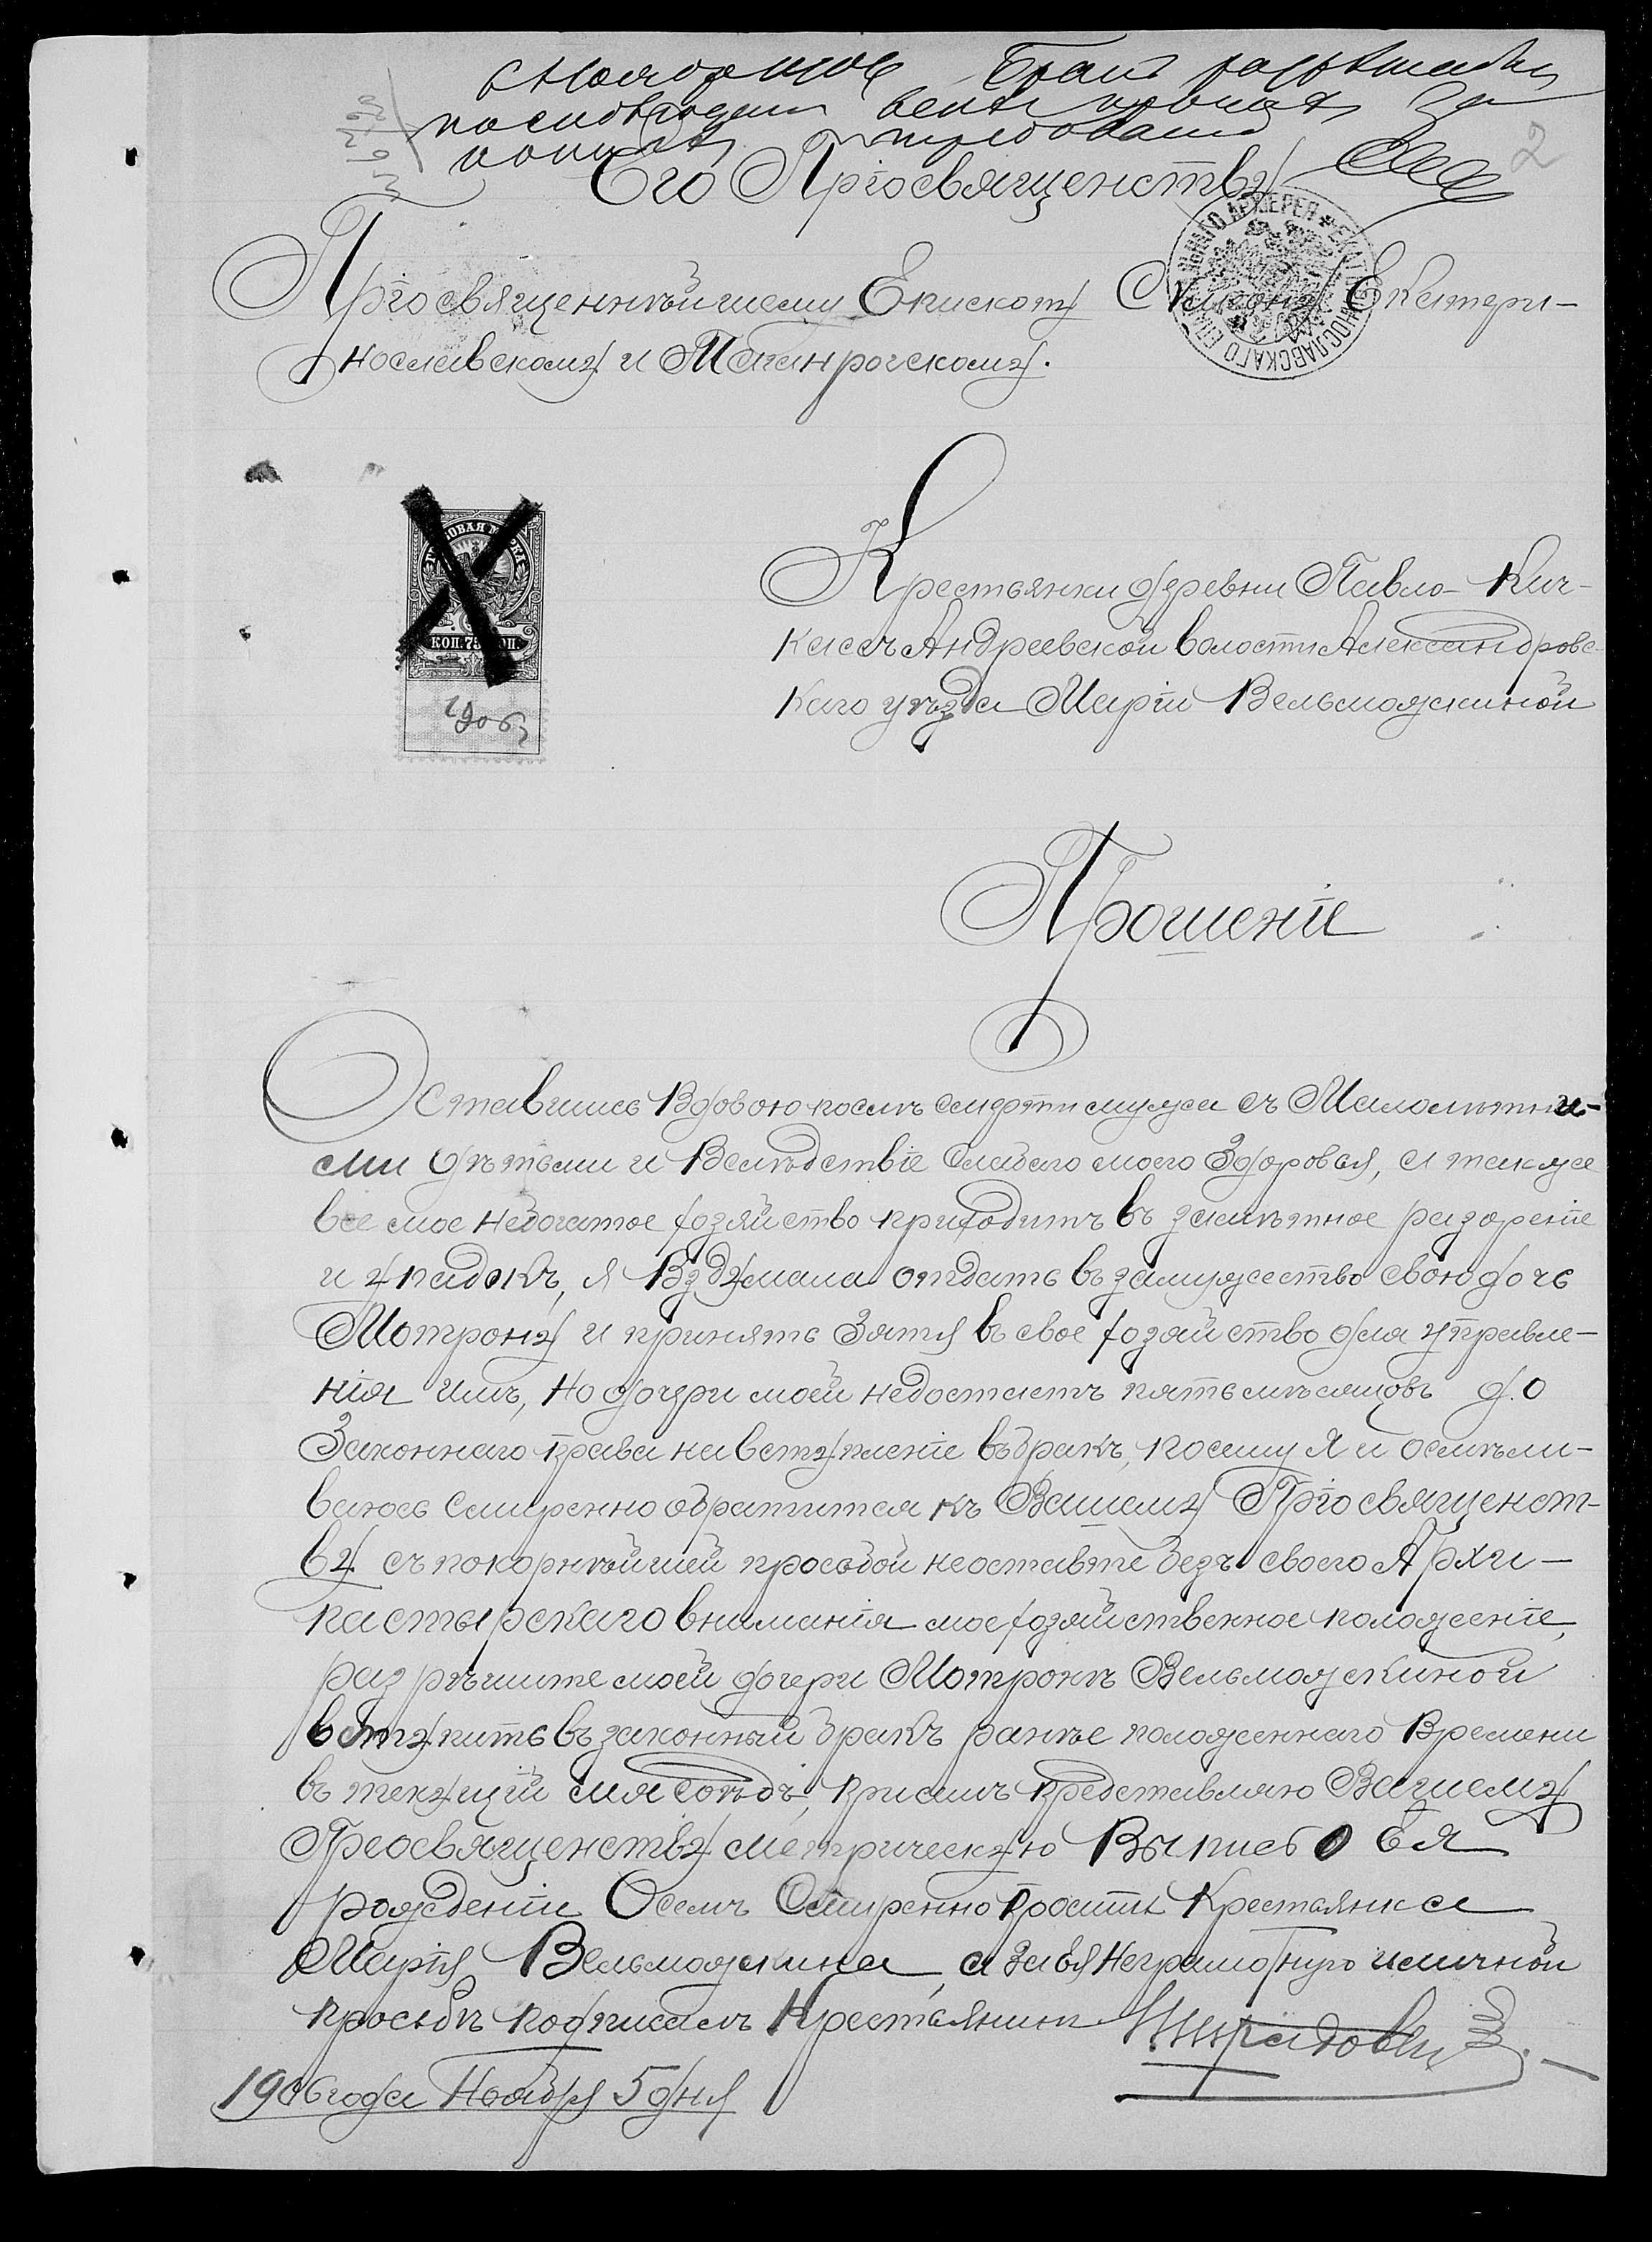 Бракъ
Его Пріосвященству
2
Пріосвященнѣйшему Епископу Симеону Екатери-
нославскому и Таганрогскому.
КОП. 75 КОП.
1906
Крестьянки деревни Павло-Кич-
касъ Андреевской волости Александровс-
каго уѣзда Маріи Вельможкиной
Прошеніе
Оставшись вдовою послѣ смерти мужа съ Малолѣтни-
ми дѣтьми и Вслѣдствіе слабаго моего Здоровья, а также
все мое небогатое хозяйство приходитъ въ замѣтное разореніе
и упадокъ, я Вздумала отдать въ замужество свою дочь
Мотрону и принять Зятя въ свое хозяйство для управле-
нія имъ, но дочери моей недостаетъ пять мѣсяцовъ до
Законнаго права на вступленіе въ бракъ, посему я и осмѣли-
ваюсь смиренно обратится къ Вашему Пріосвященст-
ву съ покорнѣйшей просьбой неоставте безъ своего Архи-
пастырскаго вниманія мое хозяйственное положеніе,
разрѣшите моей дочери Мотронѣ Вельможкиной
вступить въ законный бракъ ранѣе положеннаго Времени
въ текущій мясоѣдъ, присемъ представляю Вашему
Преосвященству метрическую Выпись о ея
рожденіи О семъ Смиренно проситъ Крестьянка
Марія Вельможкина, а за нея Неграмотную и личной
просьбѣ подписалъ Крестьянинъ
1906 года Ноября 5 дня